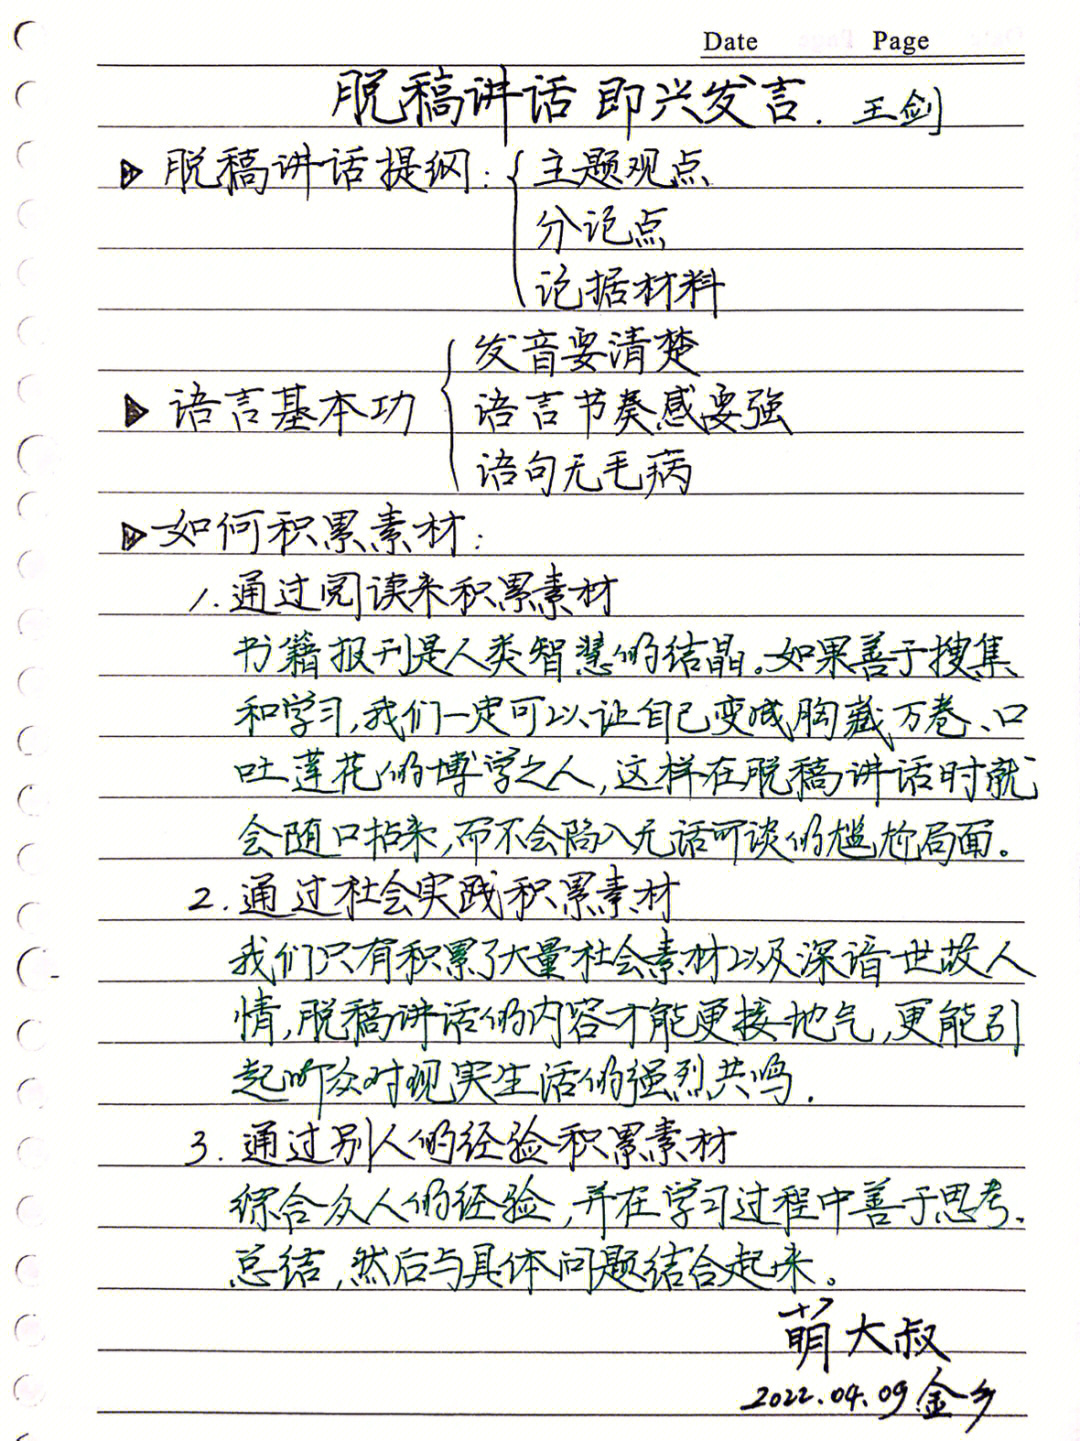 Date Page
脱稿讲话 即兴发言. 王剑
脱稿讲话提纲: 主题观点
分论点
论据材料
发音要清楚
语言基本功 语言节奏感要强
语句无毛病
如何积累素材:
1.通过阅读来积累素材
书籍报刊是人类智慧的结晶。如果善于搜集
和学习,我们一定可以让自己变成胸藏万卷、口
吐莲花的博学之人,这样在脱稿讲话时就
会随口拈来,而不会陷入无话可谈的尴尬局面。
2.通过社会实践积累素材
我们只有积累了大量社会素材以及深谙世故人
情,脱稿讲话的内容才能更接地气,更能引
起听众对现实生活的强烈共鸣.
3.通过别人的经验积累素材
综合众人的经验,并在学习过程中善于思考、
总结,然后与具体问题结合起来。
萌大叔
2022.04.09金乡